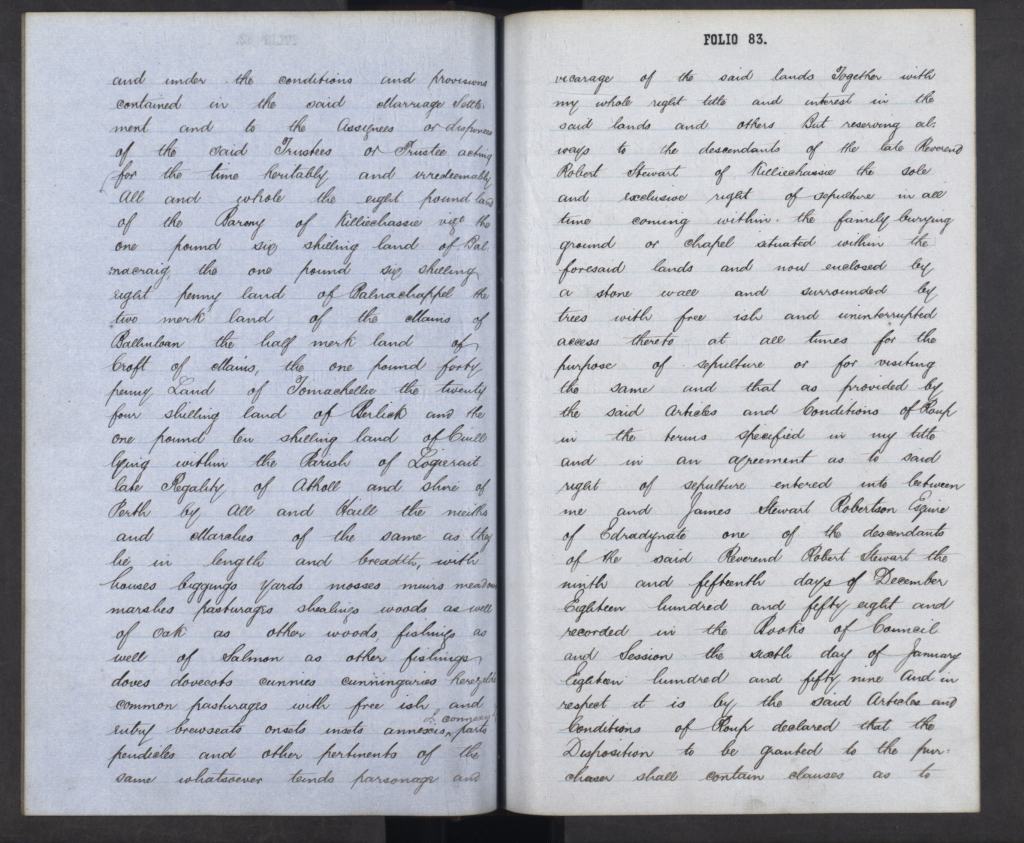 and under the conditions and provisions
contained in the said Marriage Settle-
ment and to the Assignees or disponees
of the said Trustees or Trustee acting
for the time heritably and irredeemably
All and whole the eight pound land
of the Barony of Killiechassie vizt the
one pound six shilling land of Bal-
nacraig, the one pound six shilling
eight penny land of Balnachappel the
two merk land of the Mains of
Ballinloan the half merk land of
Croft of Mains, the one pound forty
penny Land of Tomachellie the twenty
four shilling land of Berlick and the
one pound ten shilling land of Cuill
lying within the Parish of Logierait
late Regality of Atholl and shire of
Perth by All and Haill the meiths
and Marches of the same as they
lie in length and breadth, with
houses biggings yards mosses muirs meadows
marshes pasturages shealings woods as well
of oak as other woods, fishings as
well of Salmon as other fishings,
doves dovecots cunnies cunningaries herezelds
common pasturages with free ish and
entry brewseats onsets insets annexis, & connexis parts
pendicles and other pertinents of the
same whatsoever teinds parsonage and
FOLIO 83.
vicarage of the said lands Together with
my whole right title and interest in the
said lands and others But reserving al-
ways to the descendants of the late Reverend
Robert Stewart of Killiechassie the sole
and exclusive right of sepulture in all
time coming within the family burying
ground or chapel situated within the
foresaid lands and now enclosed by
a stone wall and surrounded by
trees with free ish and uninterrupted
access thereto at all times for the
purpose of sepulture or for visiting
the same and that as provided by
the said Articles and Conditions of Roup
in the terms specified in my title
and in an agreement as to said
right of sepulture entered into between
me and James Stewart Robertson Esquire
of Edradynate one of the descendants
of the said Reverend Robert Stewart the
ninth and fifteenth days of December
Eighteen hundred and fifty eight and
recorded in the Books of Council
and Session the sixth day of January
Eighteen hundred and fifty nine And in
respect it is by the said Articles and
Conditions of Roup declared that the
Disposition to be granted to the pur-
chaser shall contain clauses as to